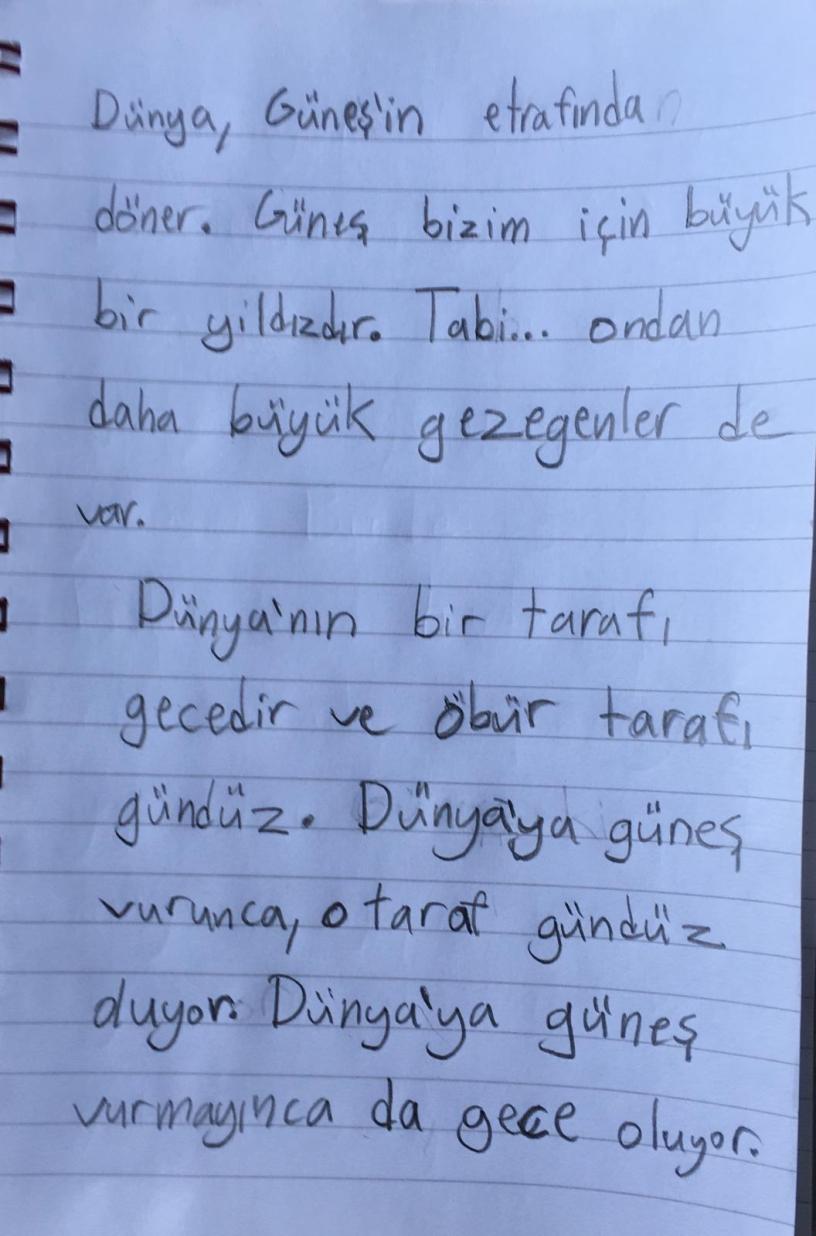 Dünya, Güneş'in etrafında
döner. Güneş bizim için büyük
bir yildızdır. Tabi... ondan
daha büyük gezegenler de
var.
Dünya'nın bir tarafı
gecedir ve öbür tarafı
gündüz. Dünya'ya güneş
vurunca, o taraf gündüz
oluyor. Dünya'ya güneş
vurmayınca da gece oluyor.